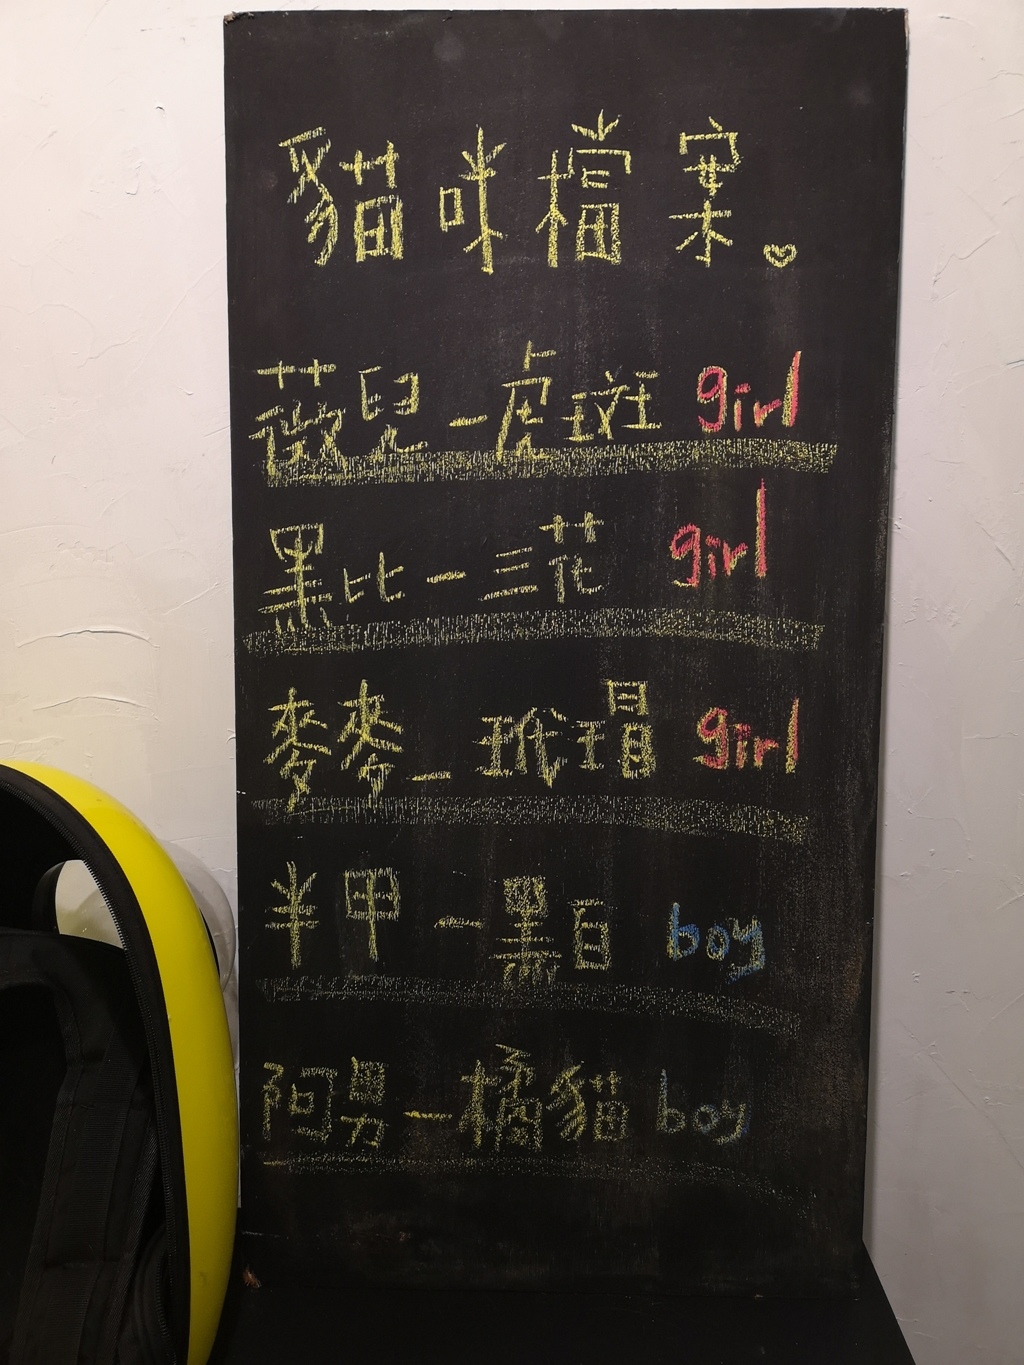 貓咪檔案
薇兒-虎斑 girl
黑比-三花 girl
麥麥-玳瑁 girl
半甲-黑白 boy
阿男-橘貓 boy